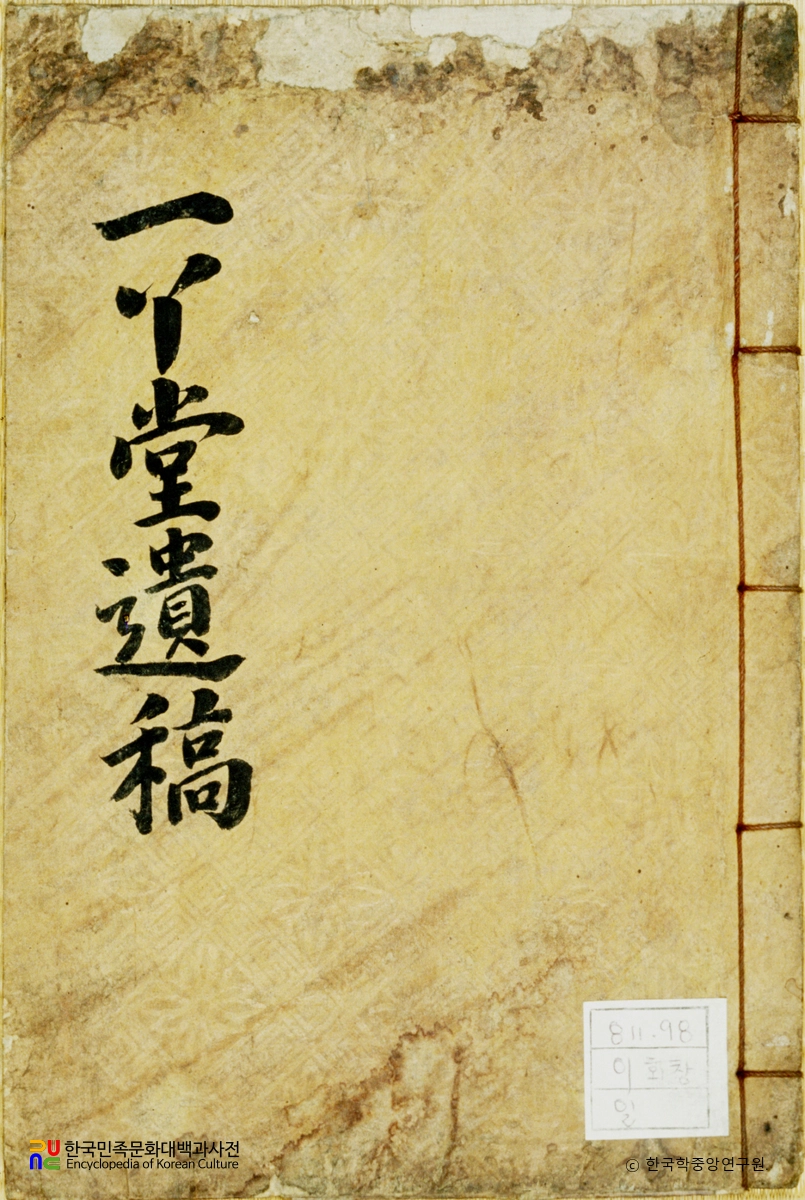 一丫堂遺稿
811.98
이회창
일
한국민족문화대백과사전
Encyclopedia of Korean Culture
© 한국학중앙연구원